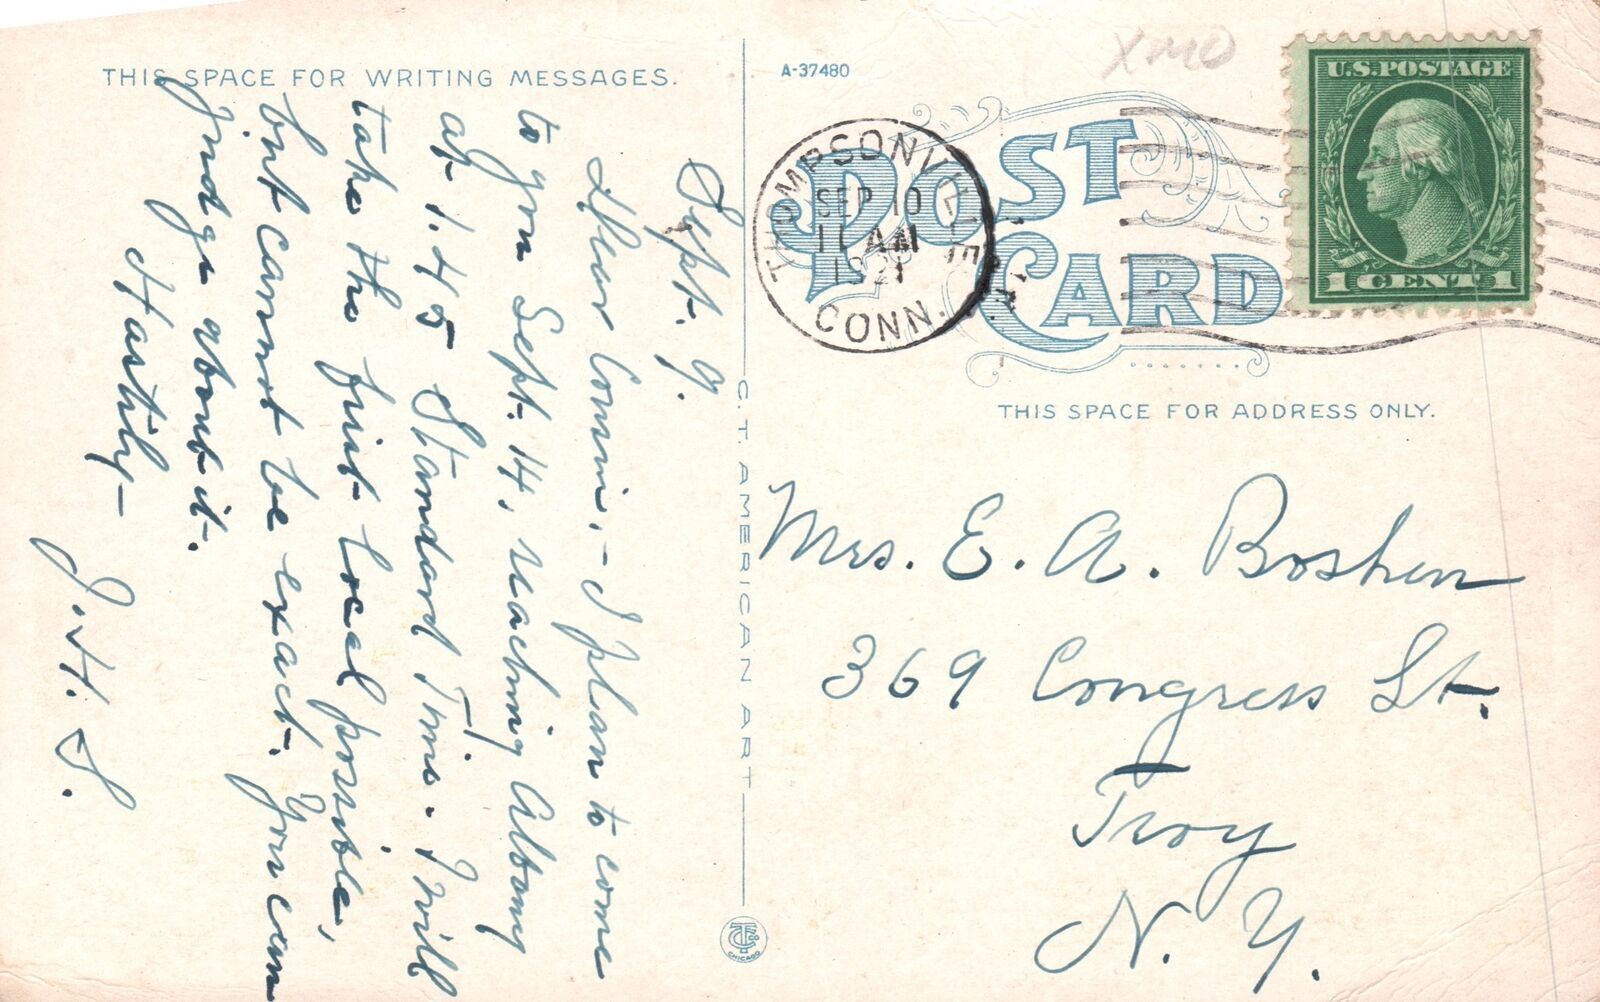 THIS SPACE FOR WRITING MESSAGES.
Sept. 9.
Dear Cousin,- I plan to come
to you Sept. 14, reaching Albany
at 1.45 Standard Time. I will
take the first local possible,
but cannot be exact. You can
judge about it.
Hastily-
J. H. S.
C. T. AMERICAN ART
CHICAGO
A-37480
XMO
POST
CARD
THOMPSONVILLE
SEP 10
11 AM
1921
CONN.
U.S. POSTAGE
1 CENT 1
THIS SPACE FOR ADDRESS ONLY.
Mrs. E. A. Boshen
369 Congress St.
Troy
N. Y.